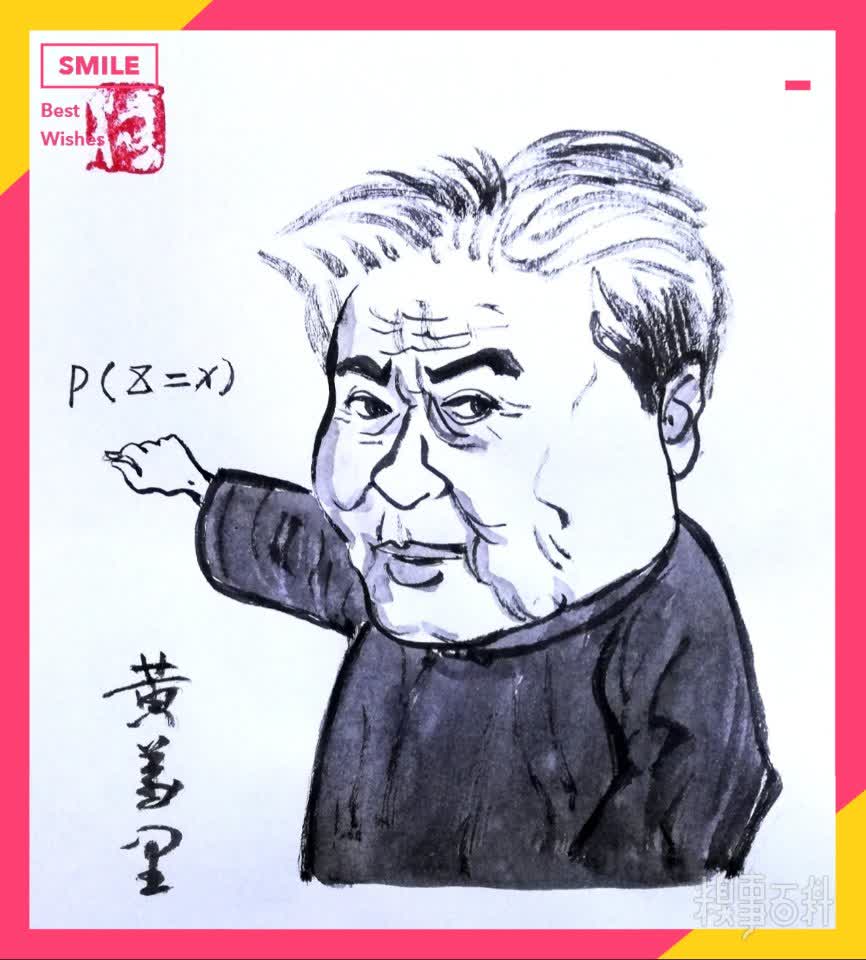 SMILE
Best
Wishes
P(X=x)
黄萬里
糗事百科